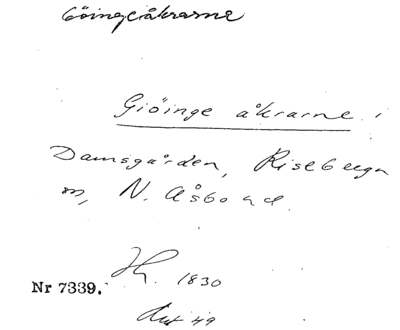 Göingeåkrarne
Giöinge åkrarne i
Damsgården, Riseberga
sn, N. Åsbo hd.
H. 1830
Nr 7339.
49